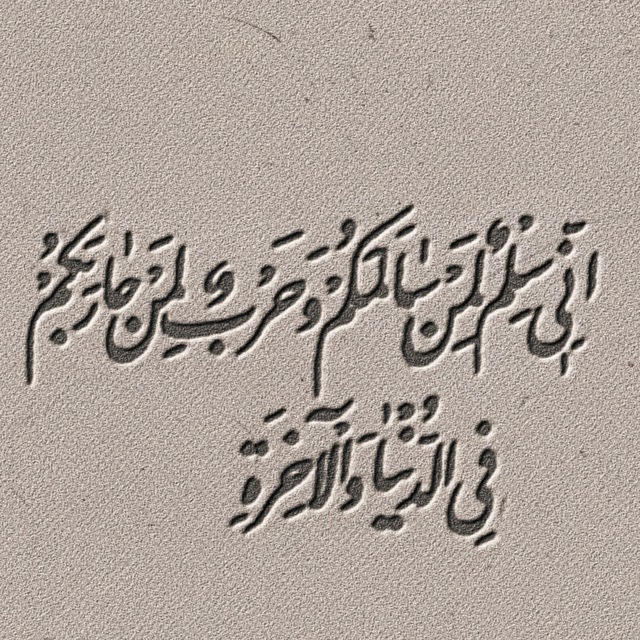 اِنّي سِلْمٌ لِمَنْ سٰالَمَكُمْ وَ حَرْبٌ لِمَنْ حٰارَبَكُمْ
فِي الدُّنْيٰا وَ الْآخِرَةِ